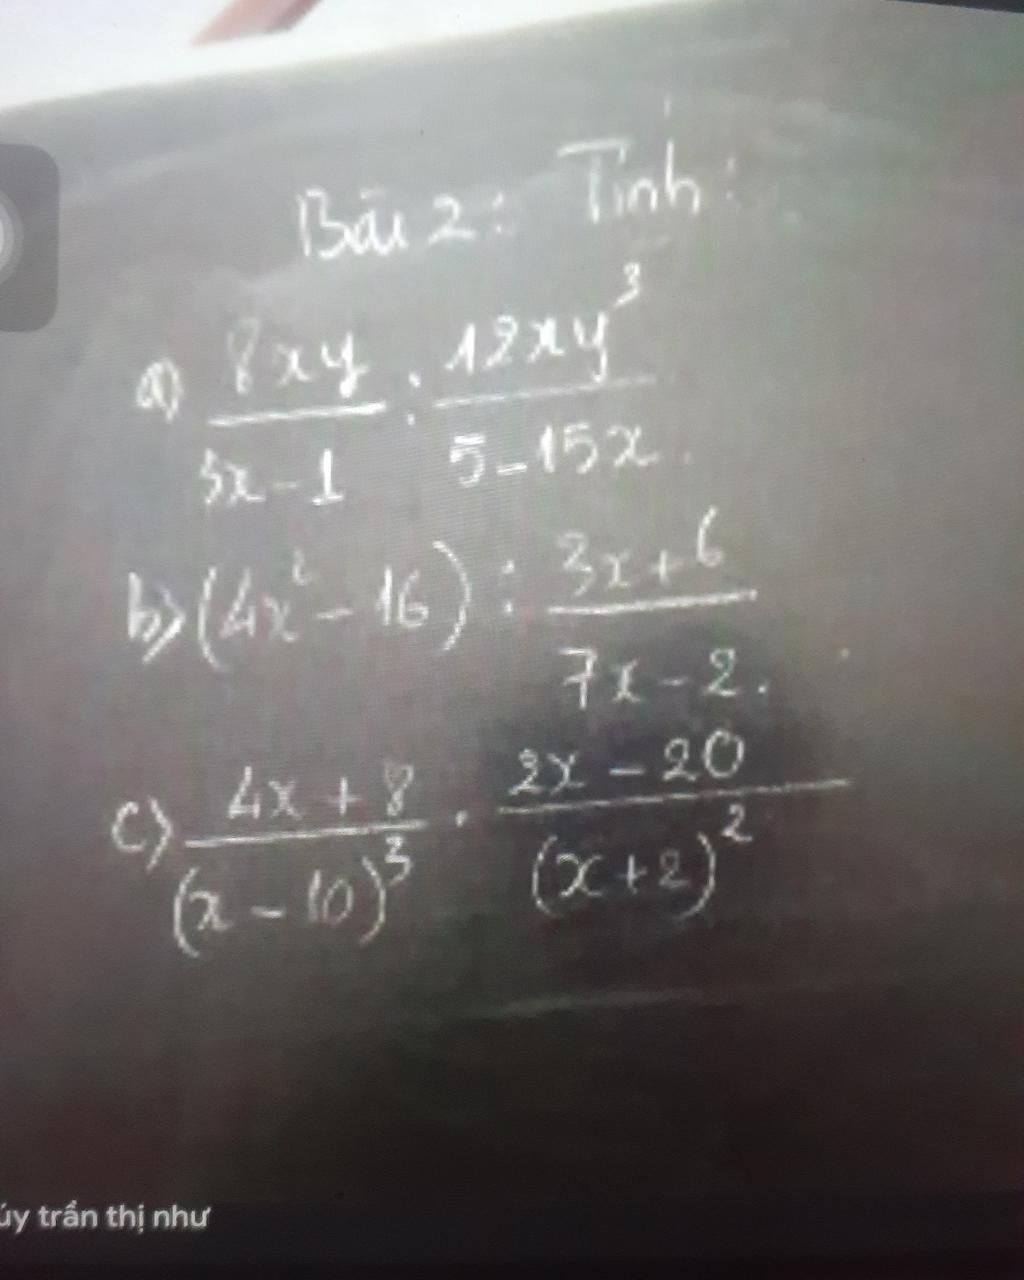 Bài 2: Tính:
a) 8xy / 3x - 1 : 12xy³ / 5 - 15x.
b) (4x² - 16) : 3x + 6 / 7x - 2.
c) 4x + 8 / (x - 10)³ . 2x - 20 / (x + 2)²
úy trần thị như